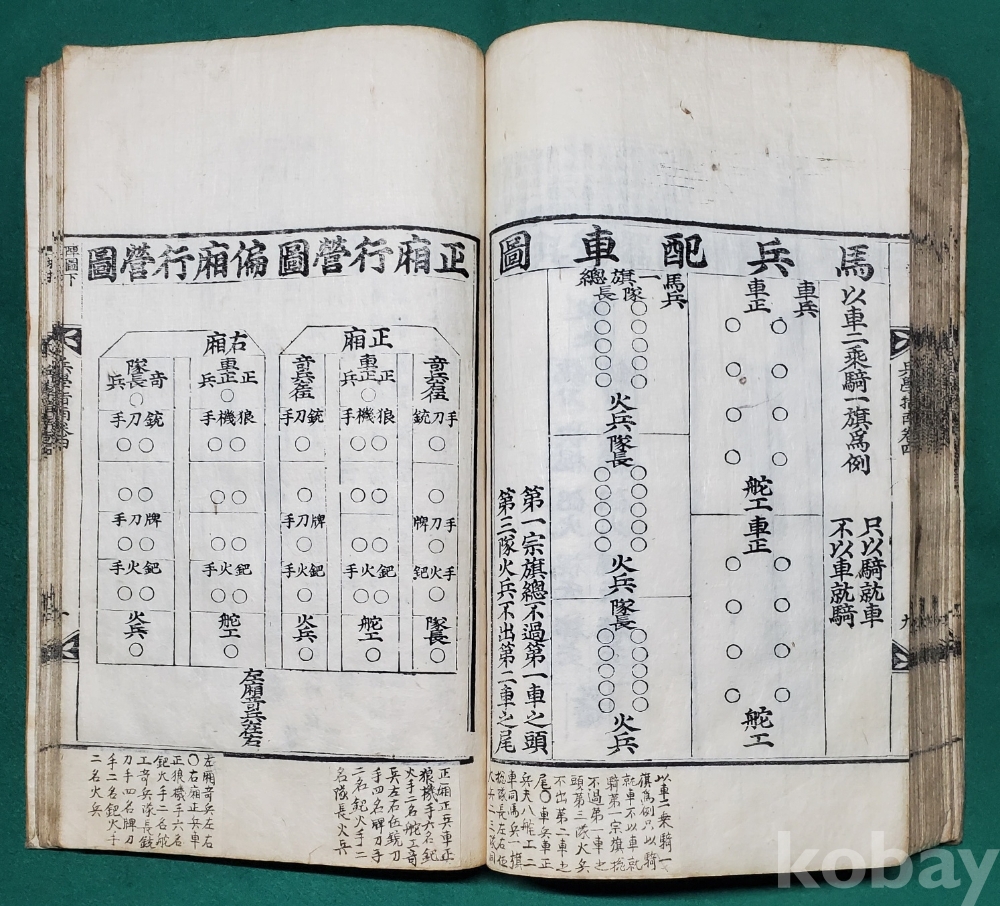 馬兵配車圖
以車二乘騎一旗為例
只以騎就車
不以車就騎
車兵
車正
舵工
車正
舵工
馬兵
一旗總
隊長
火兵
隊長
火兵
隊長
火兵
第一宗旗總不過第一車之頭
第三隊火兵不出第二車之尾
正廂行營圖
偏廂行營圖
正廂
奇兵在右
正兵
車正
奇兵在左
手刀銃
狼機手
銃刀手
手刀牌
牌刀手
手火鈀
鈀火手
鈀火手
隊長
舵工
火兵
右廂
正兵
車正
奇兵
隊長
狼機手
銃刀手
牌刀手
鈀火手
鈀火手
舵工
火兵
左廂奇兵在左右
陣圖下
兵學指南卷四
兵學指南卷四
九
以車二乘騎一
旗為例只以騎
就車不以車就
騎第一宗旗摠
不過第一車之
頭第三隊火兵
不出第二車之
尾○車兵車正
兵夫八舵工二
車司馬兵一旗
摠隊長左右位
火兵二三隊同
正廂正兵車正
狼機手六名鈀
火手二舵工奇
兵左右在銃刀
手四名牌刀手
二名鈀火手二
名隊長火兵
左廂奇兵左右
○右廂正兵車
正狼機手六名
鈀火手二名舵
工奇兵隊長銃
刀手四名牌刀
手二名鈀火手
二名火兵
kobay